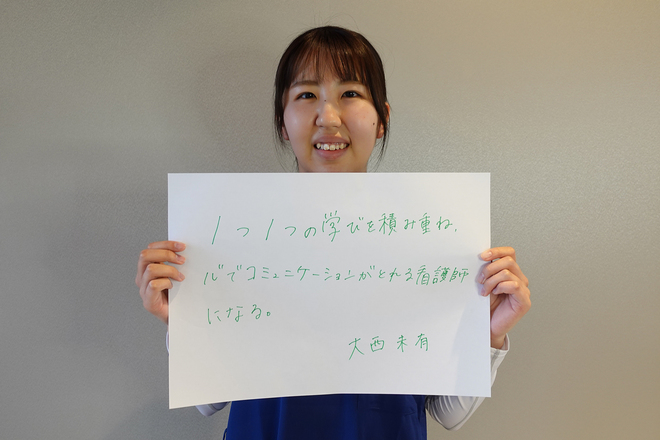 1つ1つの学びを積み重ね、
心でコミュニケーションがとれる看護師
になる。
大西 未有